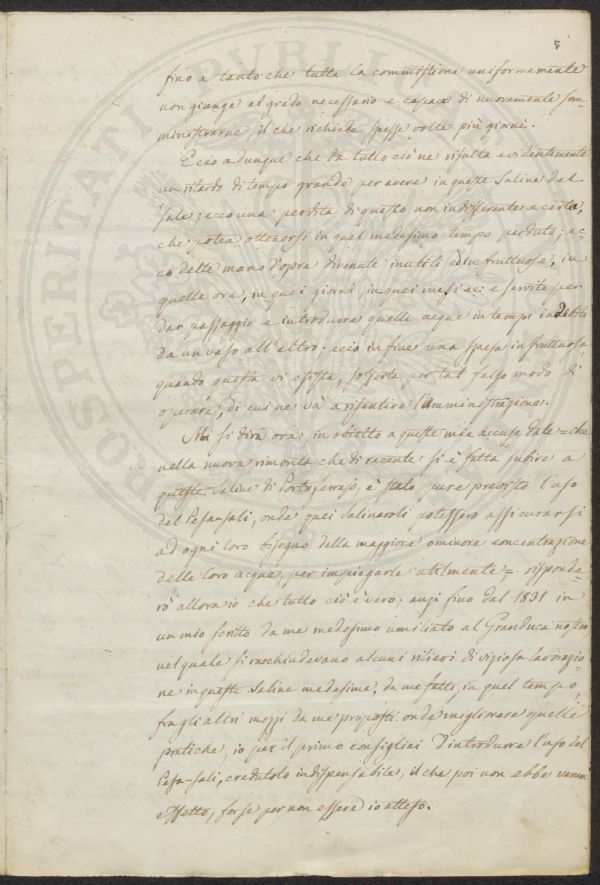 5
fino a tanto che tutta la commistione uniformemente
non giunge al grado necessario e capace di nuovamente som=
ministrarne, il che richiede spesse volte più giorni.
Ecco adunque che da tutto ciò ne risulta evidentemente
un ritardo di tempo grande per avere in queste Saline del
Sale; ecco una perdita di questo non indifferente e certa,
che potea ottenersi in quel medesimo tempo perduto; ec=
co delle mano d'opra divenute inutili ed infruttuose, in
quelle ore, in quei giorni, in quei mesi ec: e servite per
dar passaggio e introdurre quelle acque in tempi indebiti
da un vaso all'altro; ecco in fine una spesa infruttuosa,
quando questa vi esista, sofferta per tal falso modo di
operare, di cui ne và a risentire l'amministrazione.
Mi si dirà ora in obietto a queste mie accuse date = che
nella nuova rimonta che di recente si è fatta subire a
queste Saline di Portoferrajo, è stato pure previsto l'uso
del Pesa-sali, onde quei Salinaroli potessero assicurarsi
ad ogni loro bisogno della maggiore o minore concentrazione
delle loro acque, per impiegarle utilmente = risponde=
rò allora io che tutto ciò è vero; anzi fino dal 1831 in
un mio scritto da me medesimo umiliato al Granduca nostro
nel quale si racchiudevano alcuni rilievi di viziosa lavorazio=
ne in queste Saline medesime, da me fatti, in quel tempo,
fra gli altri mezzi da me proposti onde migliorare quelle
pratiche, io per il primo consigliai d'introdurre l'uso del
Pesa-sali, credutolo indispensabile, il che poi non ebbe verun
effetto, forse per non essere io atteso.
PROSPERITATI PUBLICAE